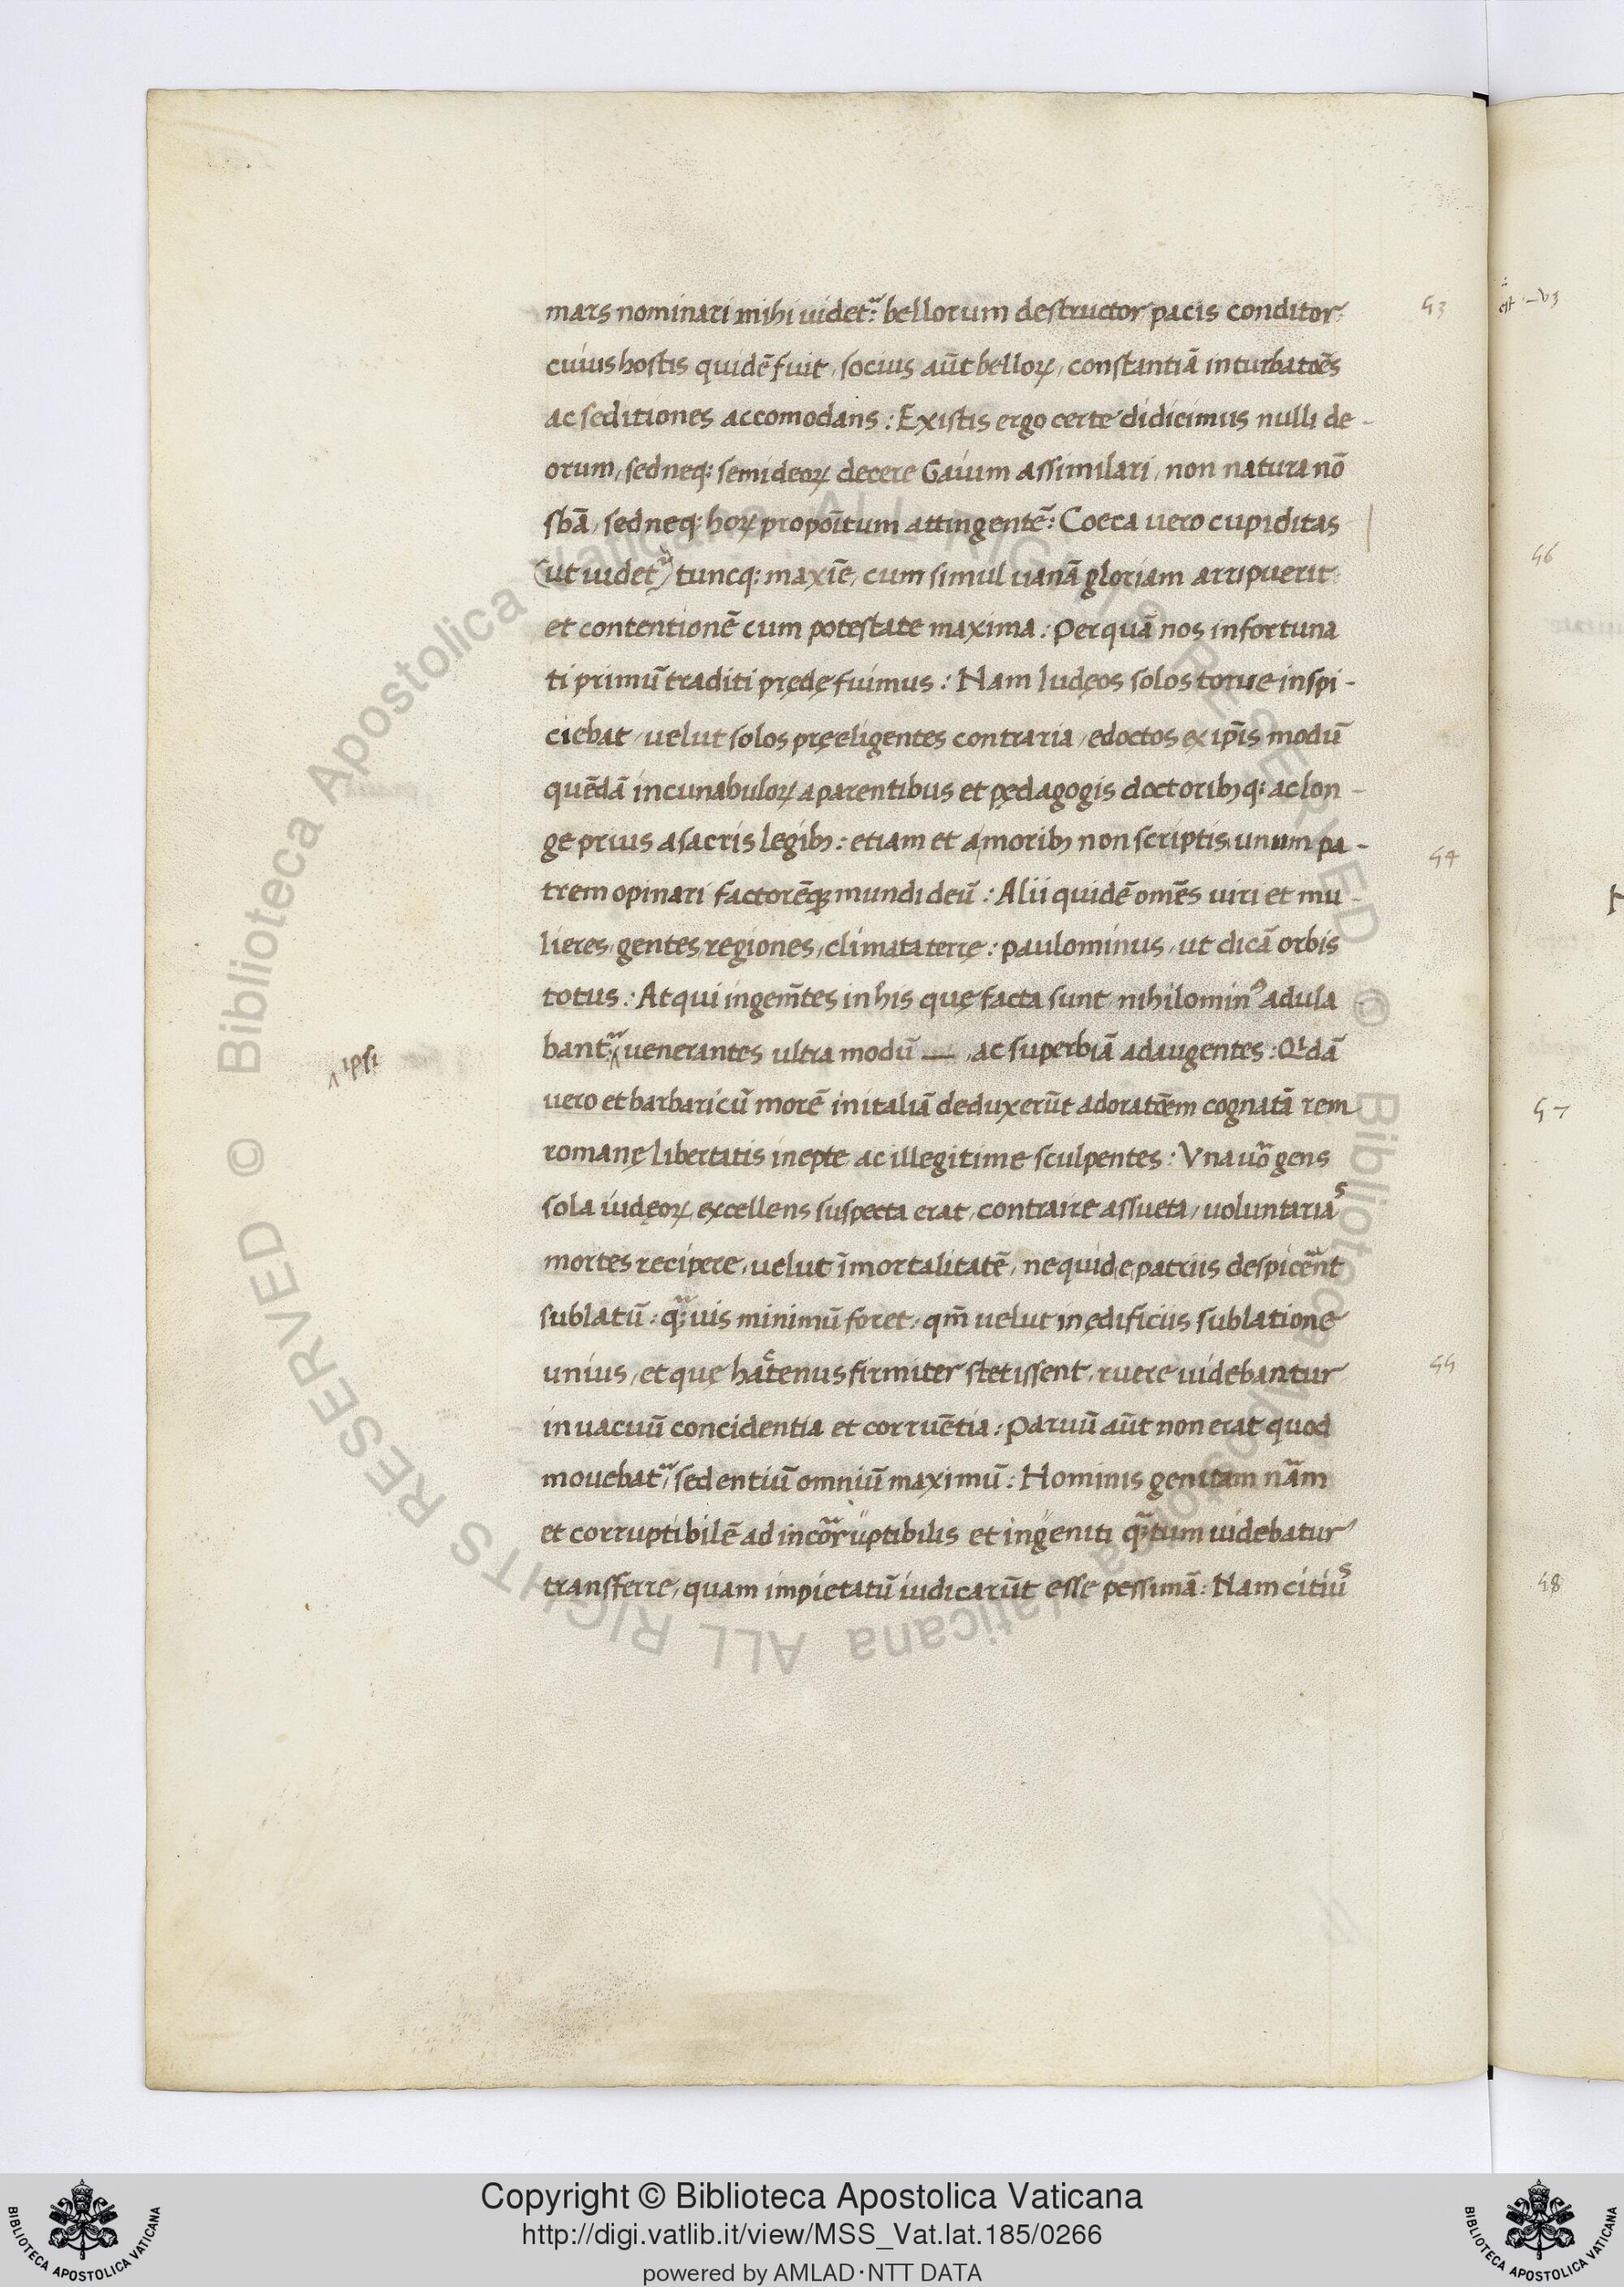 mars nominari mihi uidet᷑: bellorum destructor pacis conditor:
cuius hostis quidē fuit, socius aūt belloꝝ, constantiā in turbatōes
ac seditiones accomodans: Ex istis ergo certe didicimus nulli de-
orum, sed neq; semideoꝝ decere Gaium assimilari, non natura nō
sbā, sed neq; hoꝝ propōitum attingentē: Coeca uero cupiditas
(ut uidet᷑) tuncq; maxīe, cum simul uanā gloriam arripuerit
et contentionē cum potestate maxima: Per quā nos infortuna
ti primū traditi prędę fuimus: Nam Iudęos solos torue inspi-
ciebat, uelut solos pręeligentes contraria, edoctos ex ip̄is modū
quēdā incunabuloꝝ a parentibus et pędagogis doctoribꝫq; ac lon-
ge prius a sacris legibꝫ: etiam et a moribꝫ non scriptis unum pa-
trem opinari factorēq; mundi deū: Alii quidē omēs uiri et mu-
lieres, gentes, regiones, climata terrę: paulominus, ut dicā orbis
totus: Atqui ingem̄tes in his quę facta sunt nihilominꝰ adula
bant᷑ ‸ uenerantes ultra modū — , ac superbiā adaugentes: Qᵈdā
‸ ipsi
uero et barbaricū morē in italiā deduxerūt adoratōem cognatā rem
romanę libertatis inepte ac illegitime sculpentes: Vna uo᷑ gens
sola iudęoꝝ excellens suspecta erat, contraire assueta, uoluntariaˢ
mortes recipere, uelut īmortalitatē, ne quid e patriis despicēnt
sublatū: qᷓuis minimū foret, qm̄ uelut in ędificiis sublatione
unius, et quę haᶜtenus firmiter stetissent, ruere uidebantur
in uacuū concidentia et corruētia: Paruū aūt non erat quod
mouebat᷑, sed entiū omniū maximū: Hominis genitam nām
et corruptibilē ad incorruptibilis et ingeniti qᷓtum uidebatur
transferre, quam impietatū iudicarūt esse pessimā: Nam citiuˢ
53
54
55
56
57
58
© Biblioteca Apostolica Vaticana ALL RIGHTS RESERVED © Biblioteca Apostolica Vaticana ALL RIGHTS RESERVED
Copyright © Biblioteca Apostolica Vaticana
http://digi.vatlib.it/view/MSS_Vat.lat.185/0266
powered by AMLAD·NTT DATA
BIBLIOTECA APOSTOLICA VATICANA
BIBLIOTECA APOSTOLICA VATICANA